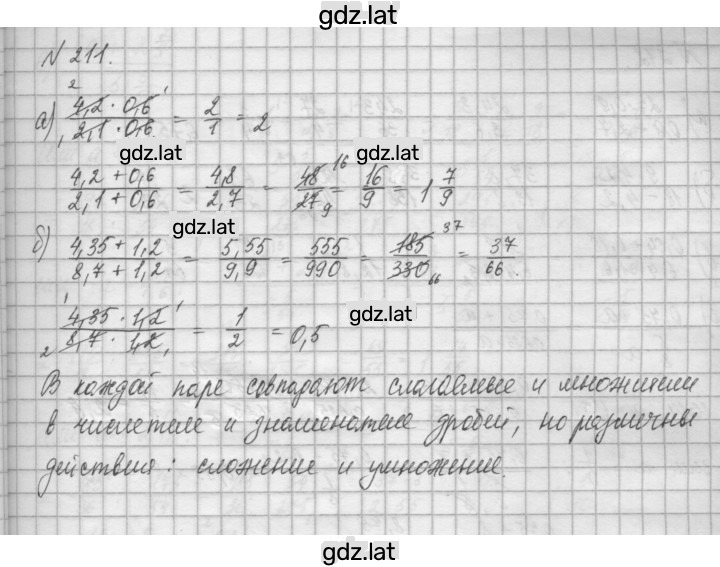 gdz.lat
N 211.
а) (4,2 · 0,6)/(2,1 · 0,6) = 2/1 = 2
gdz.lat
(4,2 + 0,6)/(2,1 + 0,6) = 4,8/2,7 = 48/27 = 16/9 = 1 7/9
gdz.lat
б) (4,35 + 1,2)/(8,7 + 1,2) = 5,55/9,9 = 555/990 = 185/330 = 37/66
gdz.lat
(4,35 · 1,2)/(8,7 · 1,2) = 1/2 = 0,5
В каждой паре совпадают слагаемые и множители
в числителе и знаменателе дробей, но различны
действия: сложение и умножение.
gdz.lat